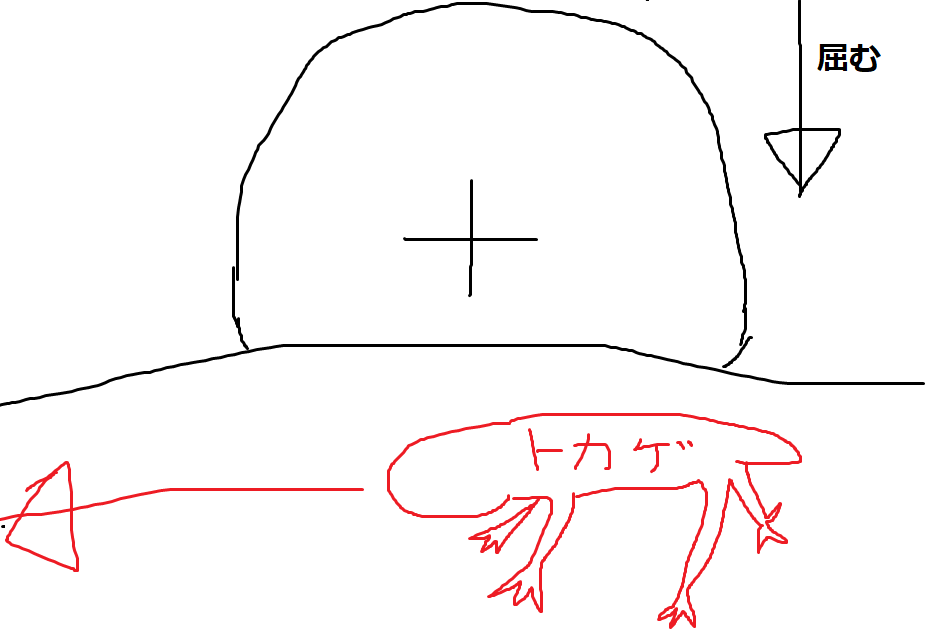 屈む
トカゲ